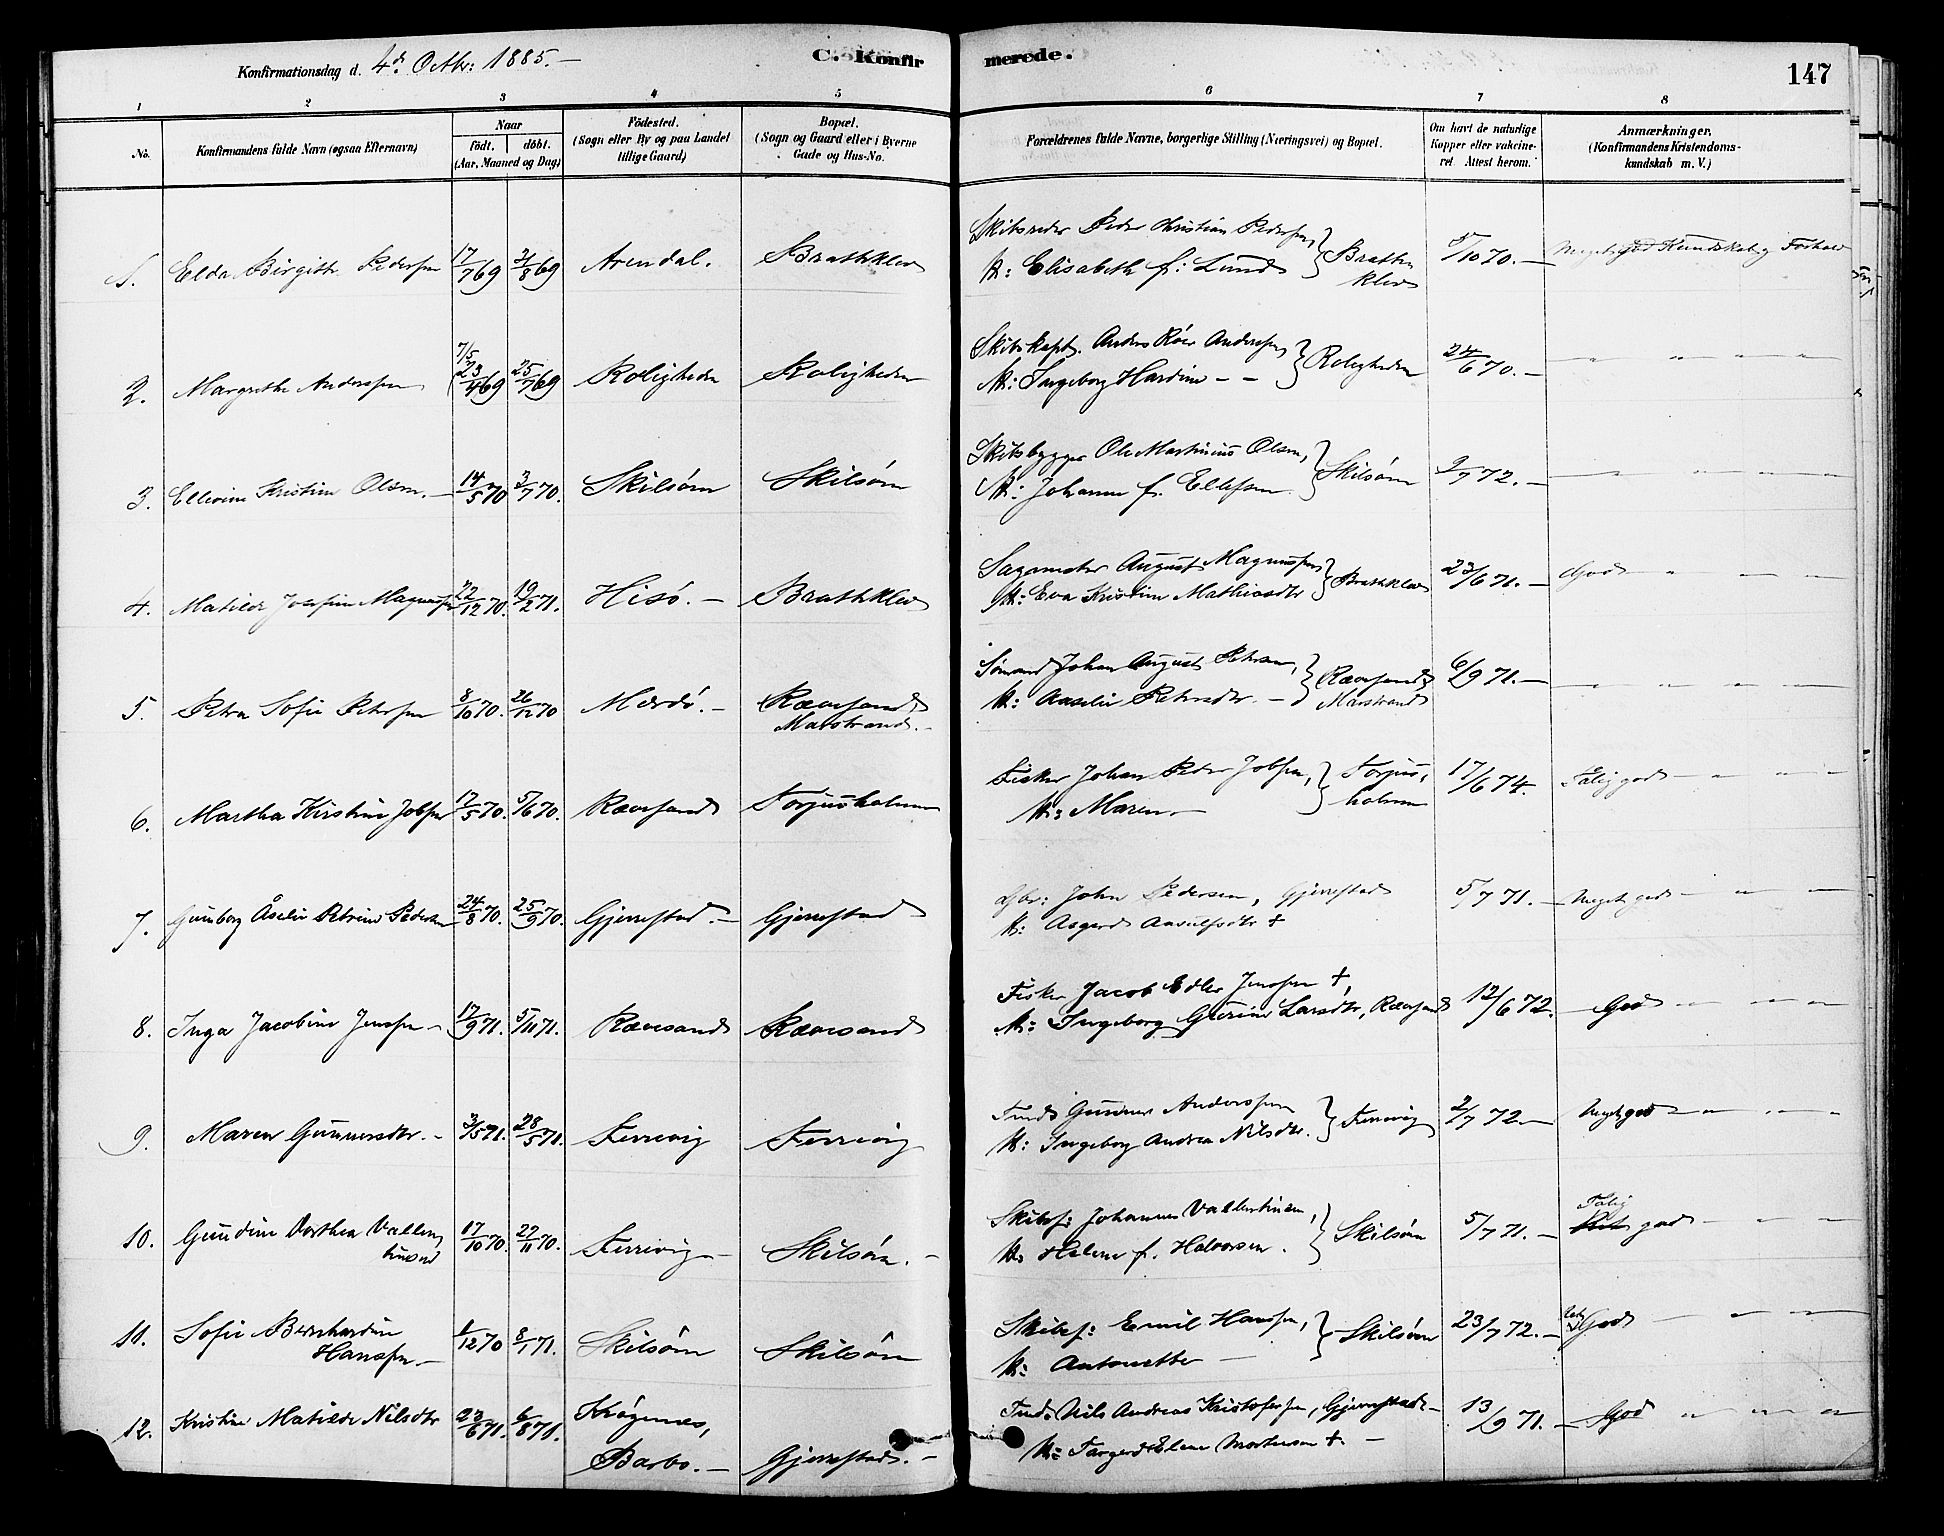 Konfirmationsdag d. 4de Octbr: 1885.—
C. Konfir
merede.
147
1 2 3 4 5 6 7 8
No.
Konfirmandens fulde Navn (ogsaa Efternavn)
Naar
födt. döbt.
(Aar, Maaned og Dag)
Födested.
(Sogn eller By og paa Landet
tillige Gaard)
Bopæl.
(Sogn og Gaard eller i Byerne
Gade og Hus-No.
Forældrenes fulde Navne, borgerlige Stilling (Næringsvei) og Bopæl.
Om havt de naturlige
Kopper eller vakcine-
ret. Attest herom.
Anmærkninger.
(Konfirmandens Kristendoms-
kundskab m. V.)
1. Elda Birgitte Pedersen 17/7 69 31/8 69 Arendal. Brathklev
Skibsreder Peder Christian Pedersen,
H: Elisabeth f: Lund } Bratte
klev
5/10 70.— Meget god Kundskab og Forhold
2. Margrethe Anderssen 7/5 23/4 69 25/7 69 Roligheden Roligheden
Skibskapt. Anders Roer Anderssen,
H: Ingeborg Hardine — — } Roligheden
24/6 70.— — " " "
3. Ellevine Kristine Olsen.— 14/5 70 3/7 70. Skilsøen Skilsøen
Skibsbygger Ole Martinius Olsen,
H: Johanne f. Ellefsen } Skilsøen
9/7 72.—
4. Matilde Josefine Magnussen 22/12 70. 19/2 71. Hisö.— Brathklev
Sagmester August Magnussen
H: Eva Kristine Mathiasdtr } Brathklev
23/6 71.— God " — —
5. Petra Sofie Petersen 8/10 70. 26/12 70 Merdö.— Rævesand
Marstrand.—
Sömand Johan August Petersen,
H: Aaselie Petersdtr.— } Rævesand
Marstrand
6/9 71.—
6. Martha Kirstine Jobsen 17/5 70. 5/6 70. Rævesand Torjusholmen
Fisker Johan Peder Jobsen,
H: Maren.— } Torjus,
holmen
17/6 74. Tålig god — " — "
7. Gunborg Åselie Petrine Pedersen 24/8 70. 25/9 70. Gjerrestad.— Gjerrestad
Gbr: John Pedersen, Gjerrestad
H: Asgerd Aasulfsdtr +
5/7 71.— Meget god — " —
8. Inga Jacobine Jenssen — 17/9 71. 5/11 71. Rævesand Rævesand
Fisker Jacob Edler Jenssen +,
H: Ingeborg Gurine Larsdtr, Rævesand
12/6 72. — God " — " —
9. Maren Gunnersdtr.— 3/5 71. 28/5 71. Ferrevig Ferrevig
Tmd Gunner Anderssen
H: Ingeborg Andrea Nilsdtr. } Ferrevig
2/7 72.— Meget god — " — " —
10. Gundine Dorthea Vallen,
tinsen 17/10 70. 27/11 70. Ferrevig— Skilsøen.—
Skibsf: Johannes Vallentinsen,
H: Helene f. Halvorsen. } Skilsøen
5/7 71.— Tålig
god — — —
11. Sofie Bernhardine
Hanssen.— 1/12 70 8/1 71. Skilsøen Skilsøen
Skibsf: Emil Hanssen,
H: Antonette — } Skilsøen
23/7 72.— God — " —
12. Kristine Matilde Nilsdtr 23/6 71. 6/8 71. Krögenes,
Barbo.— Gjerrestad.—
Tmd: Nils Andreas Kristofersen, Gjerrestad.—
H: Targerd Elene Mortensen +.—
13/9 71.— God " — " — "